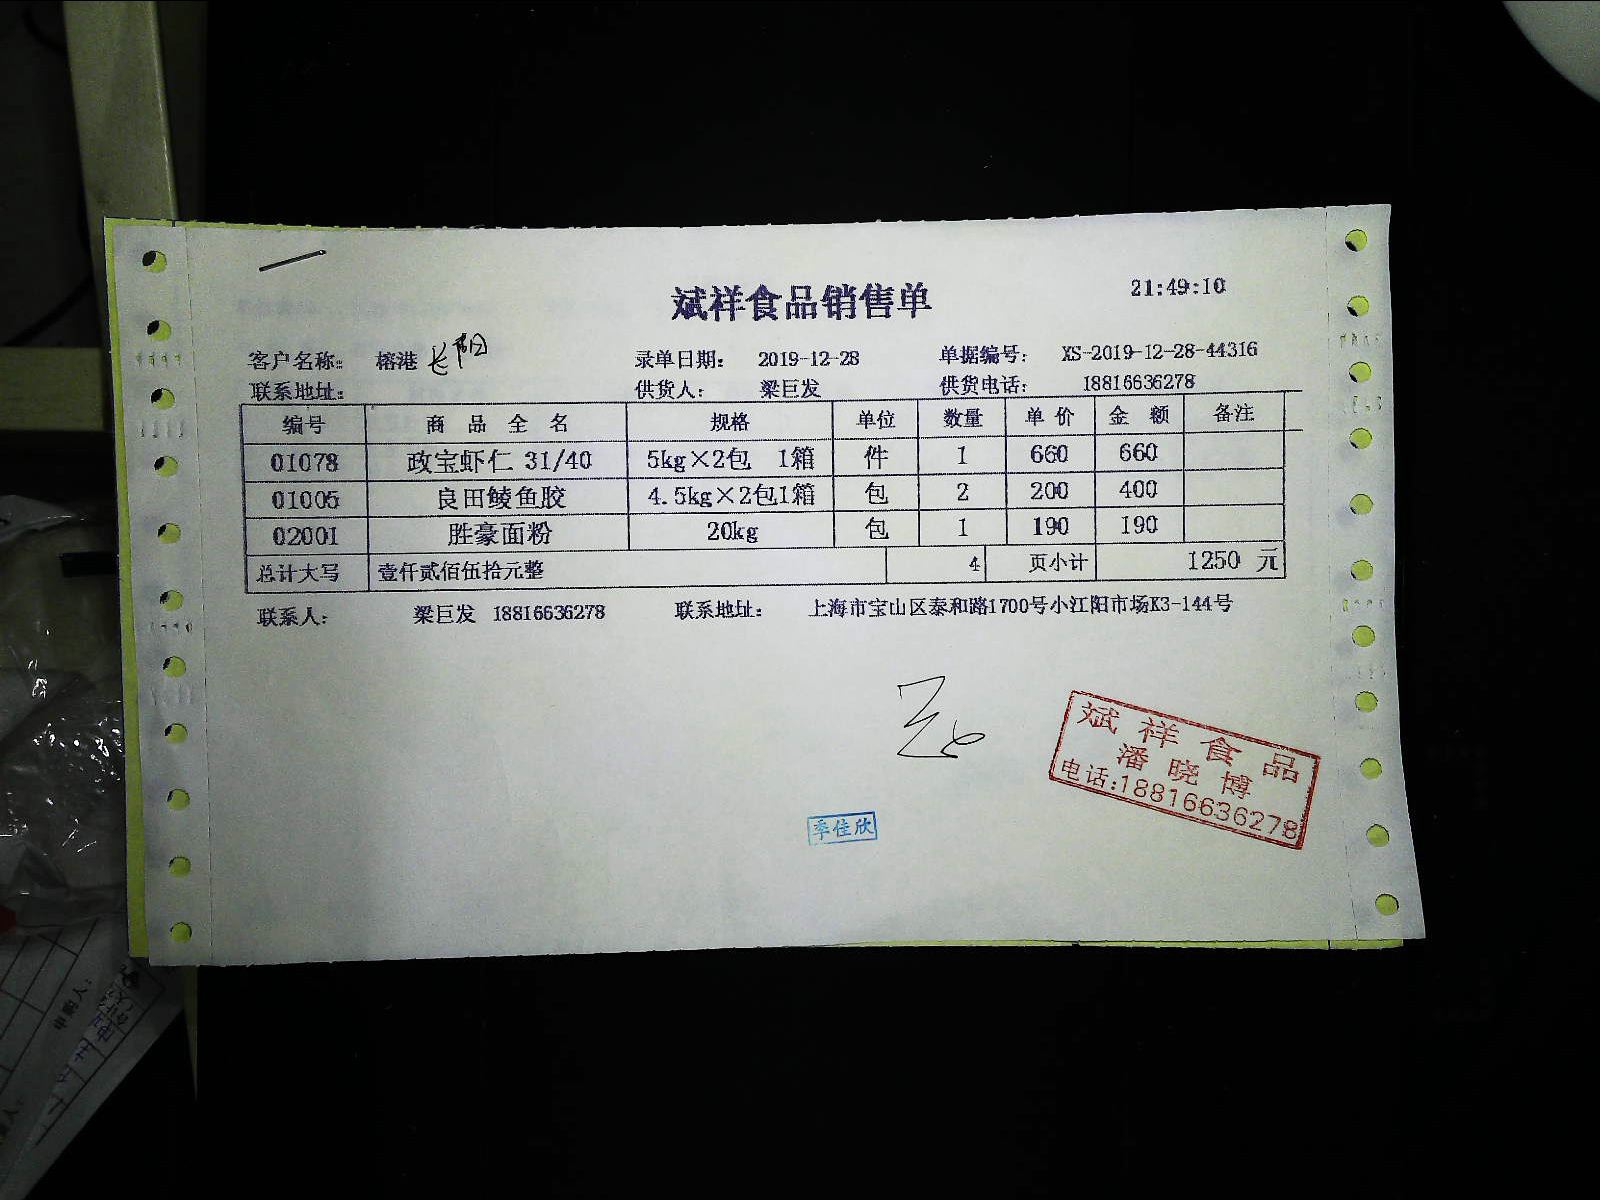 斌祥食品销售单 21:49:10
客户名称: 榕港 长阳 录单日期: 2019-12-28 单据编号: XS-2019-12-28-44316
联系地址: 供货人: 梁巨发 供货电话: 18816636278
编号 商 品 全 名 规格 单位 数量 单 价 金 额 备注
01078 政宝虾仁 31/40 5kg×2包 1箱 件 1 660 660
01005 良田鲮鱼胶 4.5kg×2包1箱 包 2 200 400
02001 胜豪面粉 20kg 包 1 190 190
总计大写 壹仟贰佰伍拾元整 4 页小计 1250 元
联系人: 梁巨发 18816636278 联系地址: 上海市宝山区泰和路1700号小江阳市场K3-144号
斌祥食品
潘晓博
电话:18816636278
季佳欣
申购人: